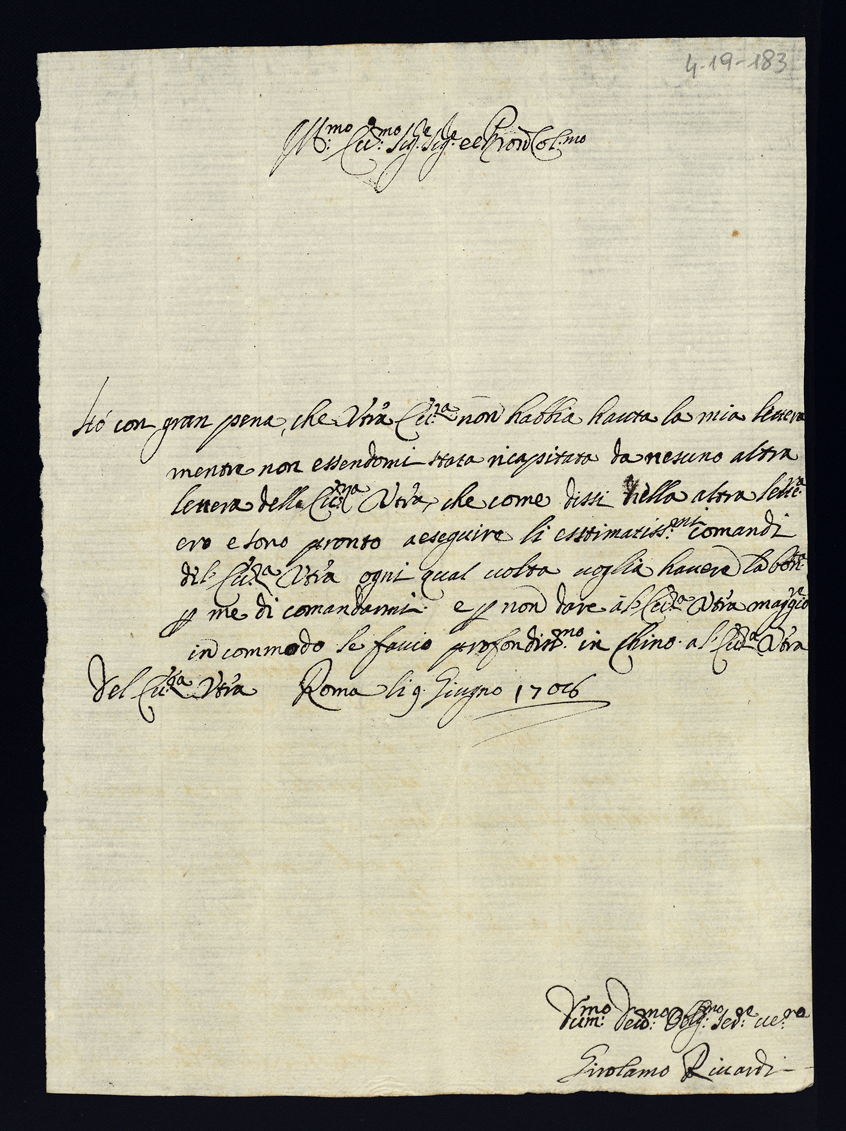 4-19-183
Ill.mo Ecc.mo Sig.e Sig.e e Pron Col.mo
Stó con gran pena, che Vtra Ecc.za non habbia hauta la mia lettera
mentre non essendomi stata ricapitata da nesuno altra
lettera della Ecc.za Vtra, che come dissi nella altra lettera
ero e sono pronto a eseguire li esstimatiss.mi comandi
del Ecc.za Vtra ogni qual uolta uoglia hauere la bontà
p me di comandarmi. e p non dare à l'Ecc.za Vtra maggio
incommodo le faccio profondiss.mo in Chino. a l'Ecc.za Vtra
Del Ecc.za Vtra Roma li 9 Giugno 1706
Vum.mo Deuo.mo Oblg.mo Ser.e
Girolamo Riccardi